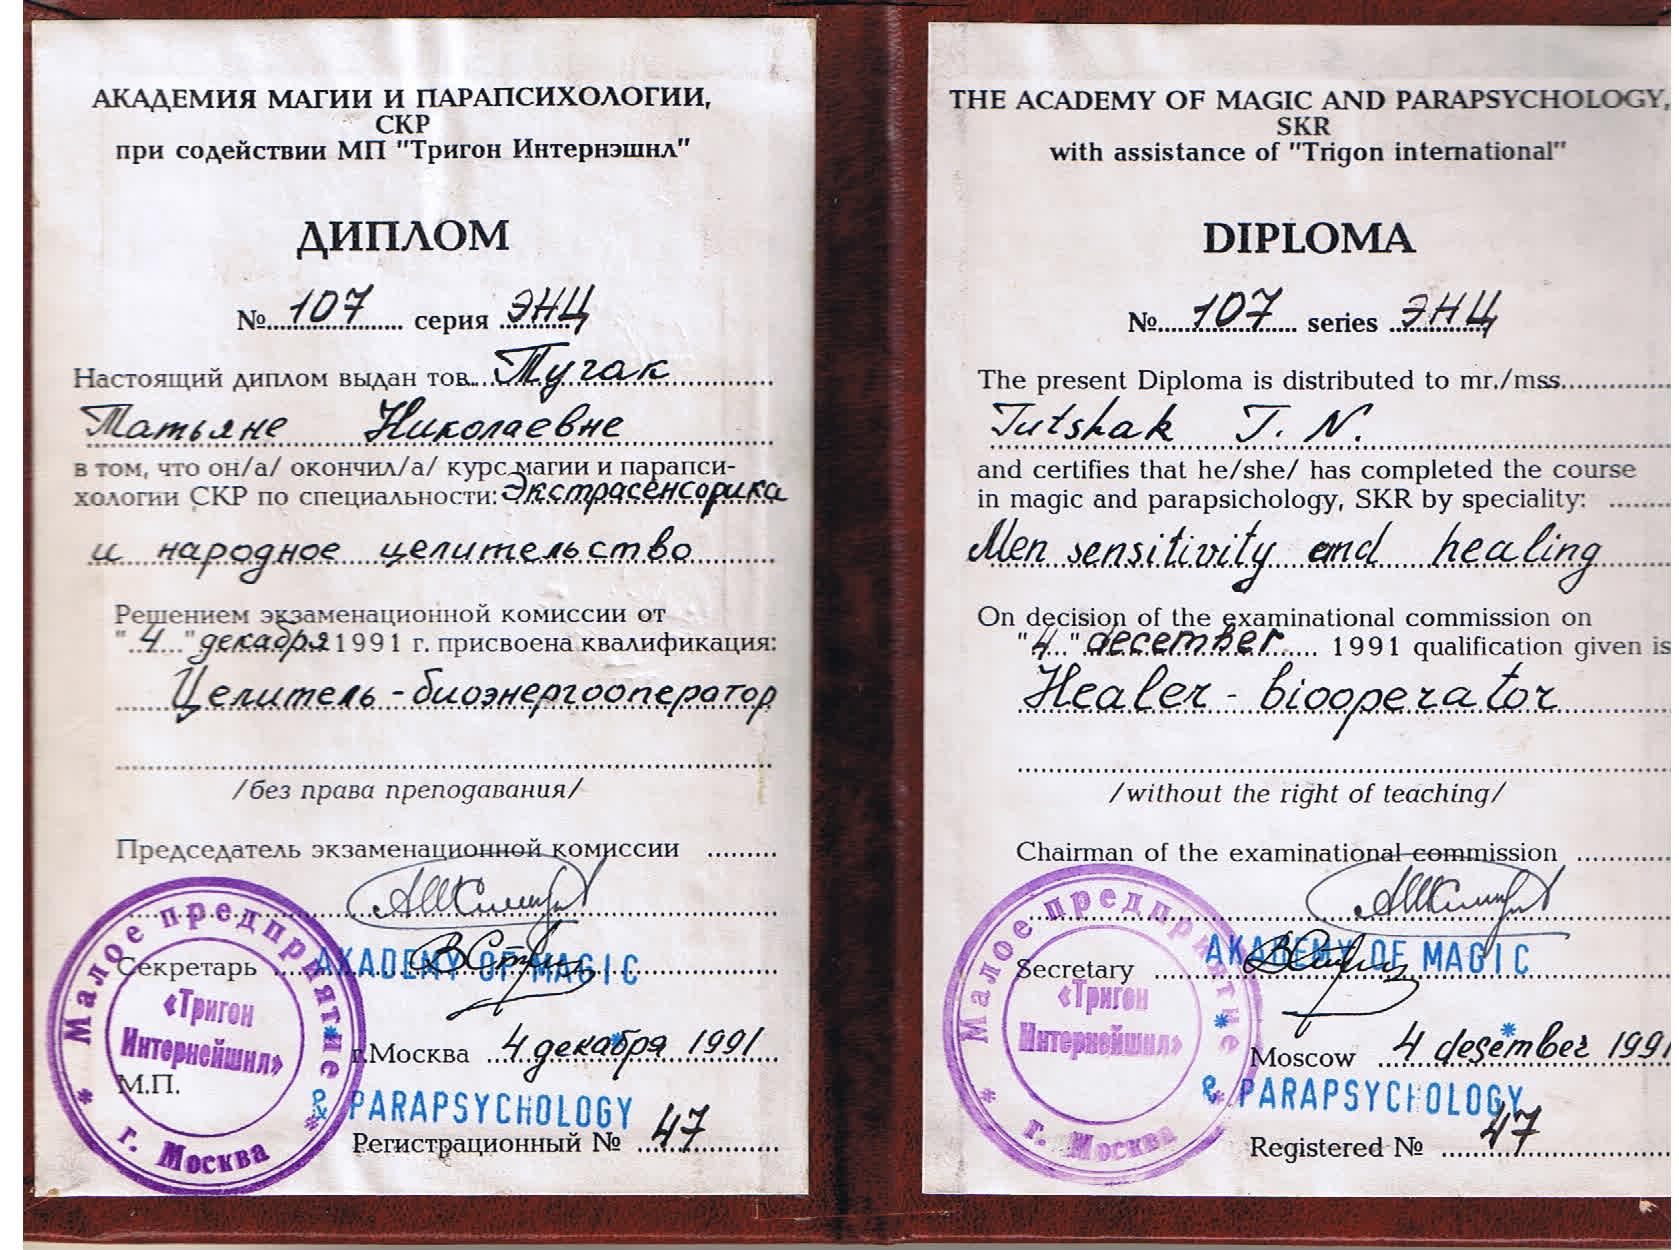 АКАДЕМИЯ МАГИИ И ПАРАПСИХОЛОГИИ,
СКР
при содействии МП "Тригон Интернэшнл"
ДИПЛОМ
№ 107 серия ЭНЦ
Настоящий диплом выдан тов. Тучак
Татьяне Николаевне
в том, что он/а/ окончил/а/ курс магии и парапси-
хологии СКР по специальности: Экстрасенсорика
и народное целительство
Решением экзаменационной комиссии от
"4" декабря 1991 г. присвоена квалификация:
Целитель-биоэнергооператор
/без права преподавания/
Председатель экзаменационной комиссии
Секретарь
AKADEMY OF MAGIC
г.Москва 4 декабря 1991
М.П.
& PARAPSYCHOLOGY
Регистрационный № 47
Малое предприятие
«Тригон
Интернейшнл»
г. Москва
THE ACADEMY OF MAGIC AND PARAPSYCHOLOGY,
SKR
with assistance of "Trigon international"
DIPLOMA
№ 107 series ЭНЦ
The present Diploma is distributed to mr./mss.
Tutshak T. N.
and certifies that he/she/ has completed the course
in magic and parapsichology, SKR by speciality:
Men sensitivity and healing
On decision of the examinational commission on
"4" december 1991 qualification given is
Healer - biooperator
/without the right of teaching/
Chairman of the examinational commission
Secretary
AKADEMY OF MAGIC
Moscow 4 desember 1991
& PARAPSYCHOLOGY
Registered № 47
Малое предприятие
«Тригон
Интернейшнл»
г. Москва